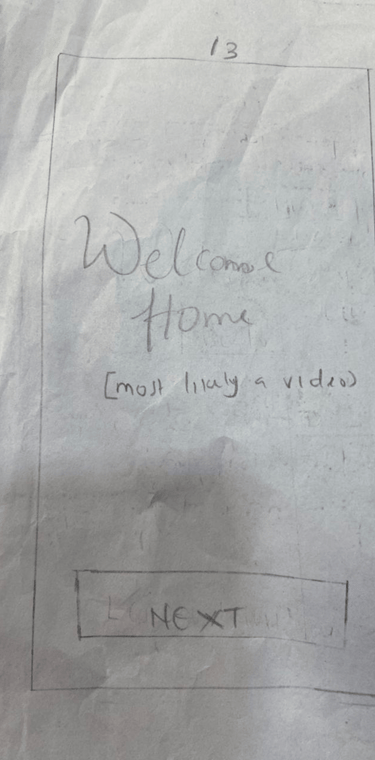 13
Welcome
Home
(most likely a video)
NEXT